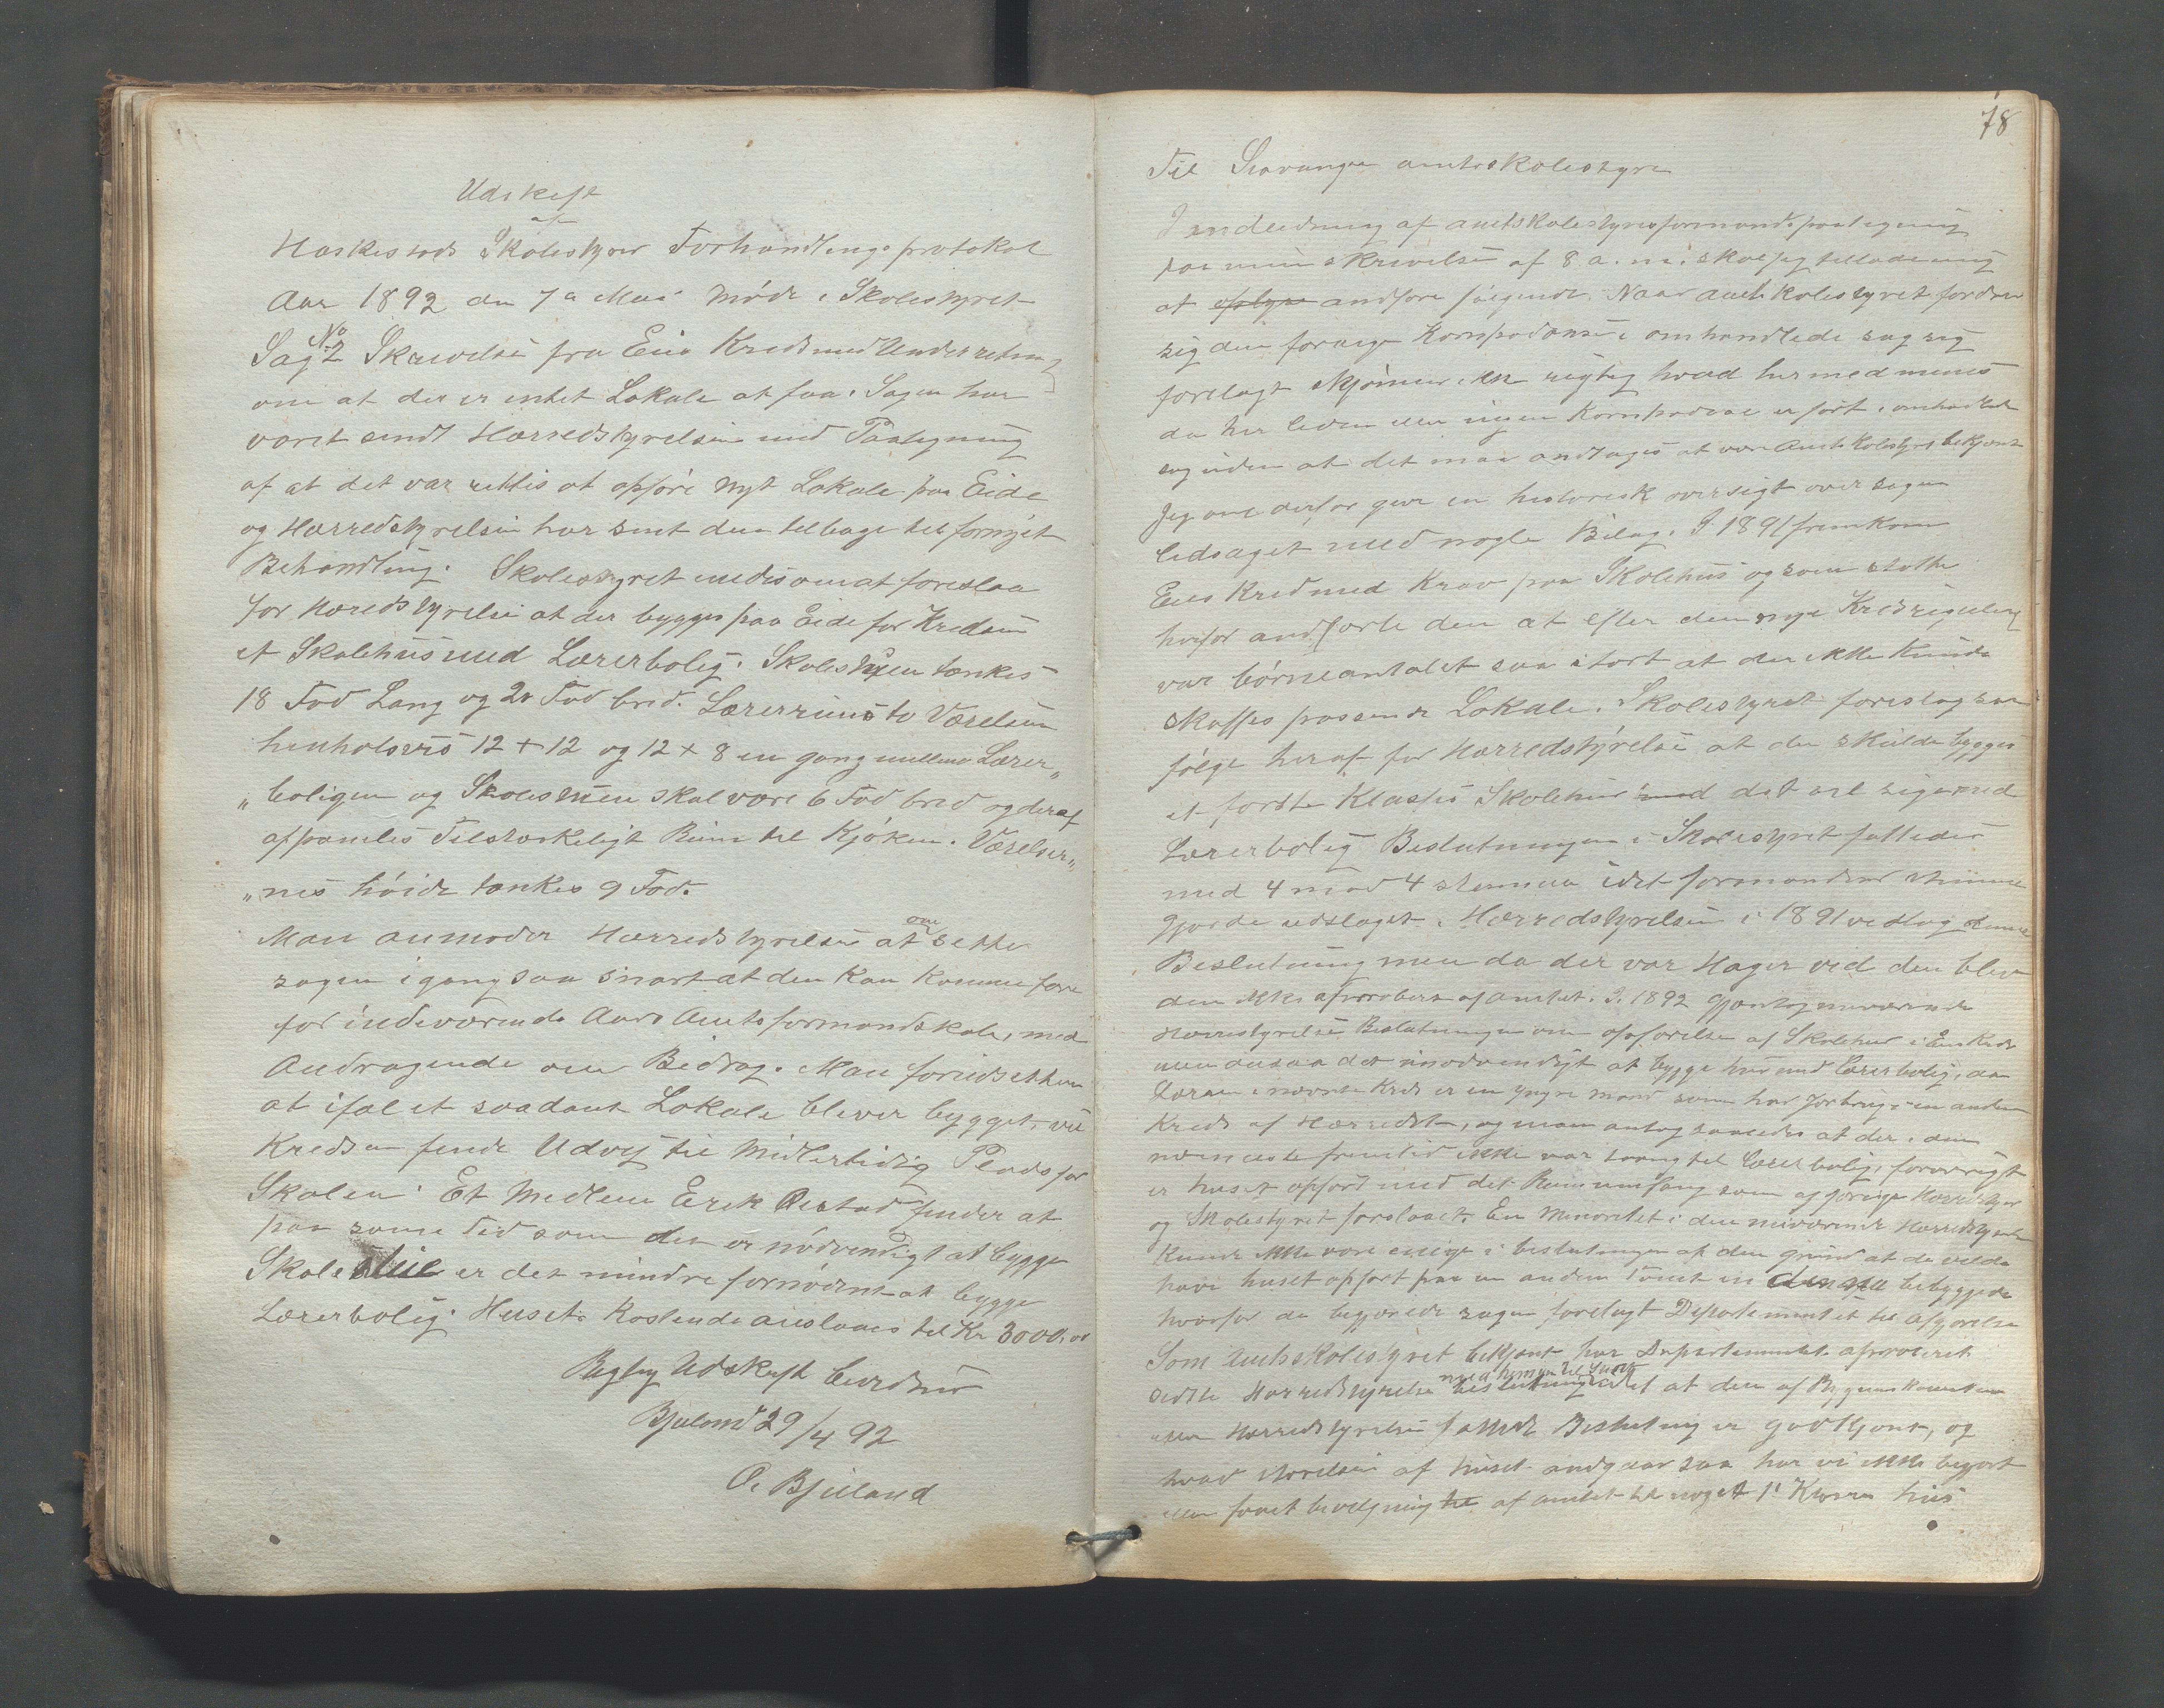 Udskrift
af
Heskestads Skolestyres Forhandlingsprotokol
Aar 1892 den 7de Mai Møde i Skolestyret
Sag No 2 Skrivelse fra Eies Kreds med Underretning
om at der er intet Lokale at faa. Sagen har
været sendt Herredstyrelsen med Paategning
af at det var rettes at opføre nyt Lokale paa Eide
og Herredstyrelsen har sent den tilbage til fornyet
Behandling. Skolestyret enedes om at foreslaa
for Heredstyrelse at der bygges paa Eide for Kredsen
et Skolehus med Lærerbolig. Skolestuen tænkes
18 Fod Lang og 20 Fod bred. Lærerrums to Værelser
henholsvis 12 + 12 og 12 + 8 en gang mellem Lærer„
„boligen og Skolestuen skal være 6 Fod bred og deraf
afpaneles Tilstrækeligt Rum til Kjøken. Værelser„
„nes høide tænkes 9 Fod.
Man anmoder Herredstyrelsen om at sette
sagen igang saa snart at den kan komme fore
for indeværende Aars Amtsformandskab, med
Andragende om Bidrag. Man foruds
at ifal et saadant Lokale bliver bygget, vil
Kredsen finde Udvej til Midlertidig Plads for
Skolen. Et Medlem Erik Østad finder at
paa same tid som det er nødvendigt at bygge
Skolestue er det mindre fornødent at bygge
Lærerbolig. Husets Kostende anslaaes til Kr 3000,00
Rigtig Udskrift bevidnes
Bjuland 29/4 92
O. Bjuland
78
Til Stavanger amtsskolestyre
I andledning af amtskolestyresformands paategning
paa min skrivelse af 8 a. m. skal jeg tillade mig
at oplyse andføre følgende. Naar amtskolestyret fordrer
sig den forrige Korspodanse i omhandlede sag sig
forelagt skjønner ikke rigtig hvad hermed menes
da her liden eller ingen Korspodance er ført i omhandlede
sag uden at det maa andtages at være Amtskolestyret bekjent
Jeg maa derfor give en historisk oversigt over sagen
ledsaget med nogle Bilag. I 1891 fremkom
Eies Kreds med Krav paa Skolehus og som støtte
herfor andførte den at efter den nye Kredsregulering
var børneantalet saa stort at der ikke kunde
skaffes passende Lokale. Skolestyret foreslog som
følge heraf for Herredstyrelse at der skulde bygges
et første Klasses Skolehus med det vil sige med
Lærerbolig Beslutningen i Skolestyret fattedes
med 4 mod 4 stemmer idet formandens stemme
gjorde udslaget. Herredstyrelsen i 1891 vedtog denne
Beslutning men da der var Mager ved den blev
den ikke aproberet af amtet. I 1892 gjentog nuværende
Herredstyrelse Beslutningen om opførelse af Skolehus i Eies Kreds
men ansaa det unødvendigt at bygge hus med Lærerbolig, da
Læreren i nævnte Kreds er en yngre mand som har Jorbrug i en anden
Kreds af Herredet, og man antog saaledes at der i den
nærmeste fremtid ikke var trang til Lærerbolig, forøvrigt
er huset opført med det Rumumfang som af forrige Herredstyre
og Skolestyret foreslaaet. En Minoritet i den nuværende Herredstyrelse
Kunde ikke være enige i beslutningen af den grund at de vilde
have huset opført paa en anden Tomt en den nu bebyggede
hvorfor de begjærede sagen forelagt Departementet til Afgjørelse
Som Amtsskolestyret bekjent har Departementet aproberet
sidste Herredstyrelses beslutning idet at den af
 Herredstyrelse fattede Beslutning er godkjent, og
hvad størelsen af huset andgaar saa har vi ikke begjært
eller faaet bevilgning til af amtet til noget 1ste Klasses hus